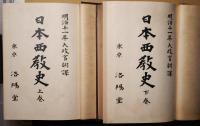 明治十一年太政官飜譯
日本西教史
上卷
東京 洛陽堂
明治十一年太政官飜譯
日本西教史
下卷
東京 洛陽堂